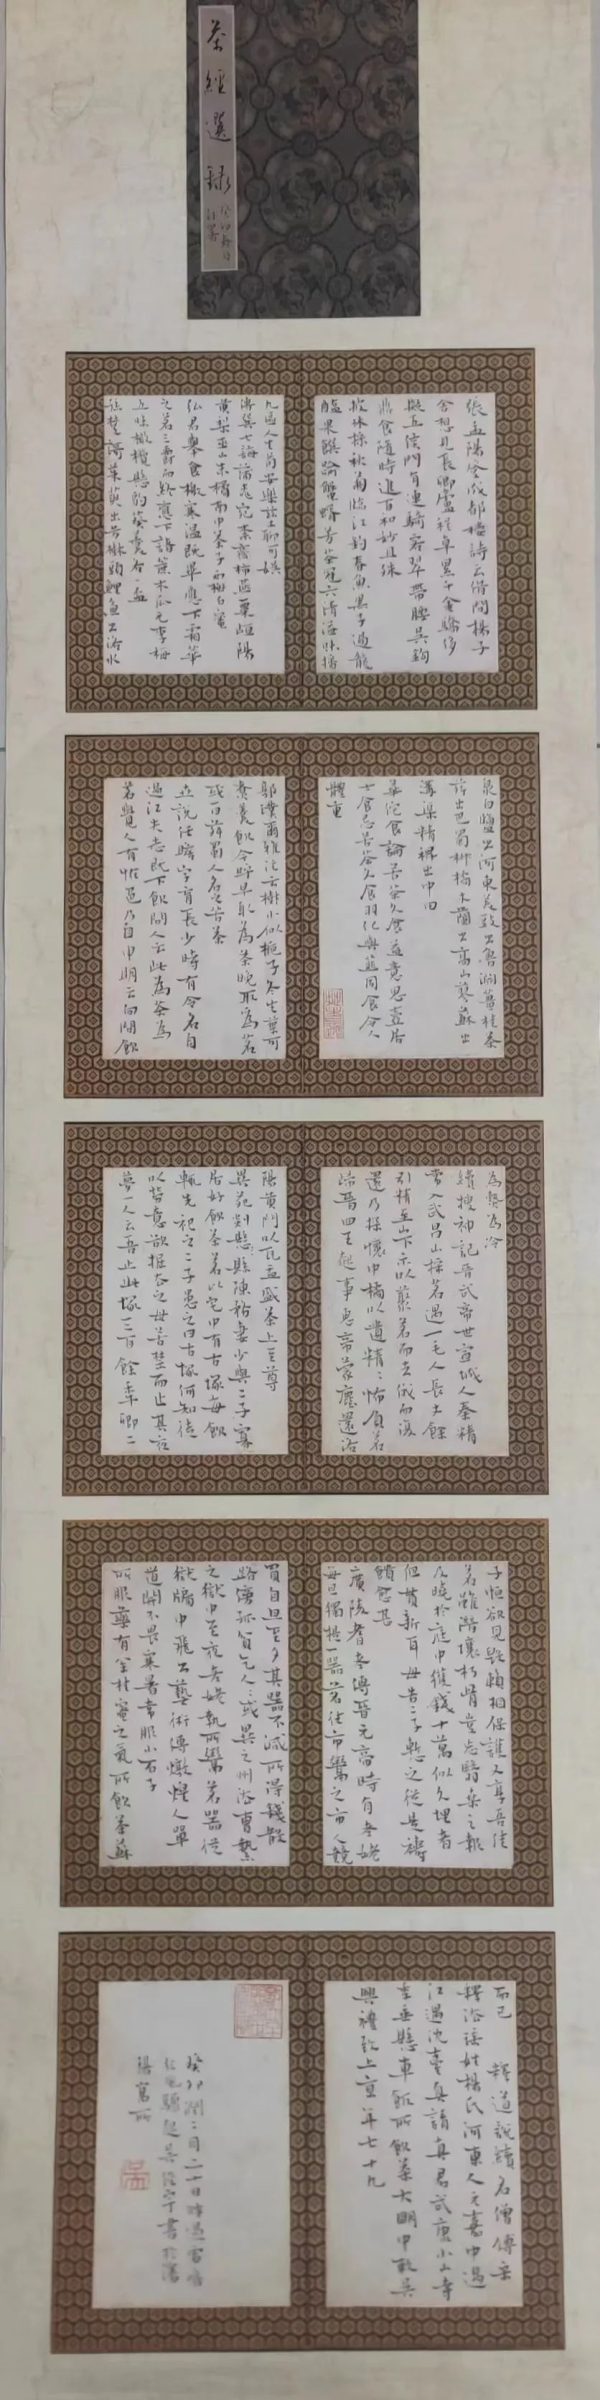 茶經選錄
癸卯春日
張孟陽登成都樓詩云借問楊子
舍想見長卿廬程卓累千金驕侈
擬五侯門有連騎客翠帶腰吳鉤
鼎食隨時進百和妙且殊
披林採秋菊臨江釣春魚黑子過龍
醢果饌踰蟹蝑芳茶冠六清溢味播
九區人生苟安樂茲土聊可娛
傅巽七誨蒲桃宛柰齊柿燕栗峘陽
黃梨巫山朱橘南中茶子西極石蜜
弘君舉食檄寒溫既畢應下霜華
之茗三爵而終應下諸蔗木瓜元李楊梅
五味橄欖懸豹葵羹各一盃
孫楚歌茱萸出芳樹顛鯉魚出洛水
泉白鹽出河東美豉出魯淵薑桂茶
荈出巴蜀椒橘木蘭出高山蓼蘇出
溝渠精稗出中田
華佗食論苦茶久食益意思壺居
士食忌苦茶久食羽化與韭同食令人
體重
郭璞爾雅注云樹小似梔子冬生葉可
煮羹飲今呼早取為茶晚取為茗
或一曰荈蜀人名之苦茶
世說任瞻字育長少時有令名自
過江失志既下飲問人云此為茶為
茗覺人有怪色乃自申明云向問飲
為熱為冷
續搜神記晉武帝世宣城人秦精
常入武昌山採茗遇一毛人長丈餘
引精至山下示以叢茗而去俄而復
還乃探懷中橘以遺精精怖負茗
而歸晉四王起事惠帝蒙塵還洛
陽黃門以瓦盂盛茶上至尊
異苑剡縣陳務妻少與二子寡
居好飲茶茗以宅中有古塚每飲
輒先祀之二子患之曰古塚何知徒
以勞意欲掘去之母苦禁而止其夜
夢一人云吾止此塚三百餘年卿二
子恒欲見毀賴相保護又享吾佳
茗雖潛壤朽骨豈忘翳桑之報
及曉於庭中獲錢十萬似久埋者
但貫新耳母告二子慙之從是禱
饋愈甚
廣陵耆老傳晉元帝時有老姥
每旦獨提一器茗往市鬻之市人競
買自旦至夕其器不減所得錢散
路傍孤貧乞人人或異之州法曹縶
之獄中至夜老姥執所鬻茗器從
獄牖中飛出藝術傳燉煌人單
道開不畏寒暑常服小石子
所服藥有松桂蜜之氣所飲茶蘇
而已 釋道說續名僧傳宋
釋法瑤姓楊氏河東人元嘉中過
江遇沈臺真請真君武康小山寺
年垂懸車飯所飲茶大明中敕吳
興禮致上京年七十九
癸卯閏二月二十日